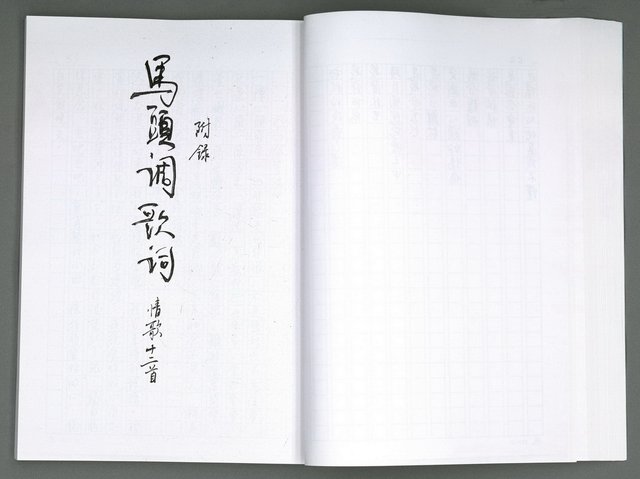 附錄
馬頭调歌词
情歌十二首